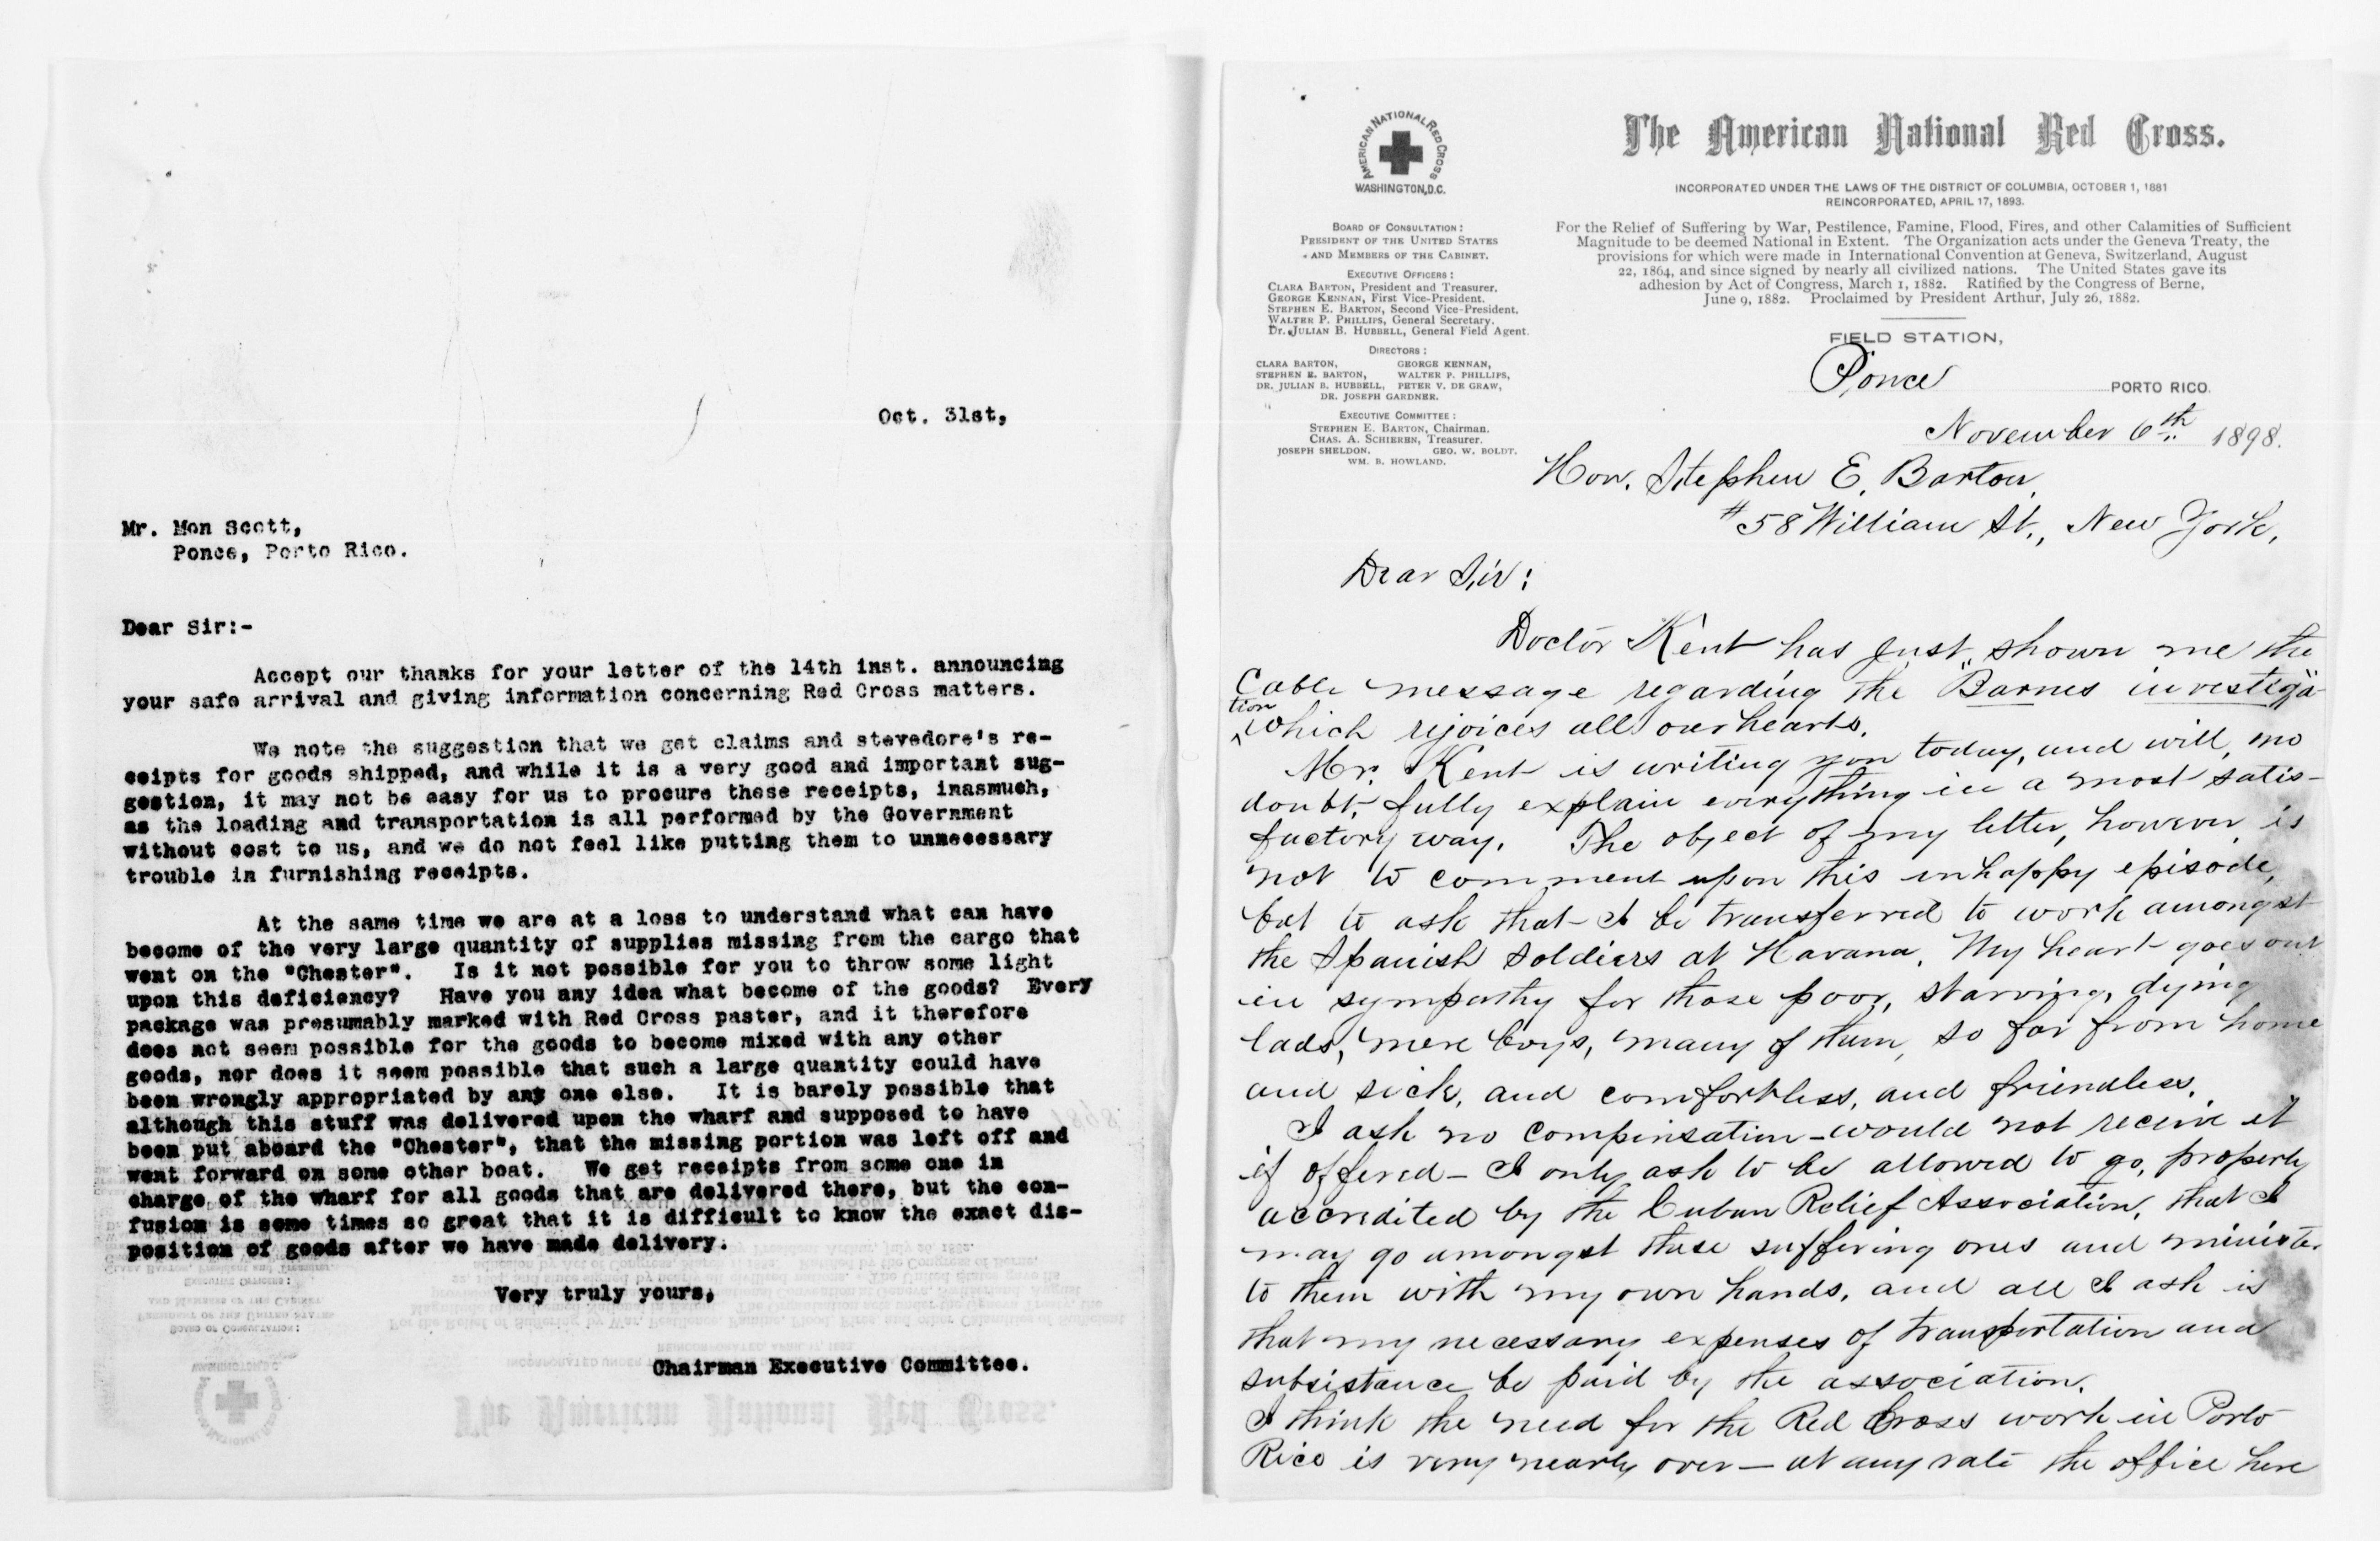 Oct. 31st,
Mr. Mon Scott,
Ponce, Porto Rico.
Dear Sir:-
Accept our thanks for your letter of the 14th inst. announcing
your safe arrival and giving information concerning Red Cross matters.
We note the suggestion that we get claims and stevedore's re-
ceipts for goods shipped, and while it is a very good and important sug-
gestion, it may not be easy for us to procure these receipts, inasmuch,
as the loading and transportation is all performed by the Government
without cost to us, and we do not feel like putting them to unnecessary
trouble in furnishing receipts.
At the same time we are at a loss to understand what can have
become of the very large quantity of supplies missing from the cargo that
went on the "Chester". Is it not possible for you to throw some light
upon this deficiency? Have you any idea what become of the goods? Every
package was presumably marked with Red Cross paster, and it therefore
does not seem possible for the goods to become mixed with any other
goods, nor does it seem possible that such a large quantity could have
been wrongly appropriated by any one else. It is barely possible that
although this stuff was delivered upon the wharf and supposed to have
been put aboard the "Chester", that the missing portion was left off and
went forward on some other boat. We get receipts from some one in
charge of the wharf for all goods that are delivered there, but the con-
fusion is some times so great that it is difficult to know the exact dis-
position of goods after we have made delivery.
Very truly yours,
Chairman Executive Committee.
AMERICAN NATIONAL RED CROSS
WASHINGTON, D.C.
The American National Red Cross.
INCORPORATED UNDER THE LAWS OF THE DISTRICT OF COLUMBIA, OCTOBER 1, 1881
REINCORPORATED, APRIL 17, 1893.
For the Relief of Suffering by War, Pestilence, Famine, Flood, Fires, and other Calamities of Sufficient
Magnitude to be deemed National in Extent. The Organization acts under the Geneva Treaty, the
provisions for which were made in International Convention at Geneva, Switzerland, August
22, 1864, and since signed by nearly all civilized nations. The United States gave its
adhesion by Act of Congress, March 1, 1882. Ratified by the Congress of Berne,
June 9, 1882. Proclaimed by President Arthur, July 26, 1882.
BOARD OF CONSULTATION:
PRESIDENT OF THE UNITED STATES
AND MEMBERS OF THE CABINET.
EXECUTIVE OFFICERS:
CLARA BARTON, President and Treasurer.
GEORGE KENNAN, First Vice-President.
STEPHEN E. BARTON, Second Vice-President.
WALTER P. PHILLIPS, General Secretary.
Dr. JULIAN B. HUBBELL, General Field Agent.
DIRECTORS:
CLARA BARTON, GEORGE KENNAN,
STEPHEN E. BARTON, WALTER P. PHILLIPS,
DR. JULIAN B. HUBBELL, PETER V. DE GRAW,
DR. JOSEPH GARDNER.
EXECUTIVE COMMITTEE:
STEPHEN E. BARTON, Chairman.
CHAS. A. SCHIEREN, Treasurer.
JOSEPH SHELDON. GEO. W. BOLDT.
WM. B. HOWLAND.
FIELD STATION,
Ponce PORTO RICO.
November 6th 1898.
Hon. Stephen E. Barton,
#58 William St., New York,
Dear Sir:
Doctor Kent has just shown me the
Cable message regarding the "Barnes investiga-
tion"
which rejoices all our hearts.
Mr. Kent is writing you today, and will, no
doubt, fully explain everything in a most satis-
factory way. The object of my letter, however is
not to comment upon this unhappy episode,
but to ask that I be transferred to work amongst
the Spanish Soldiers at Havana. My heart goes out
in sympathy for those poor, starving, dying
lads, mere boys, many of them, so far from home
and sick, and comfortless, and friendless.
I ask no compensation - would not receive it
if offered - I only ask to be allowed to go, properly
accredited by the Cuban Relief Association, that I
may go amongst these suffering ones and minister
to them with my own hands, and all I ask is
that my necessary expenses of transportation and
subsistance be paid by the association.
I think the need for the Red Cross work in Porto
Rico is very nearly over - at any rate the office here